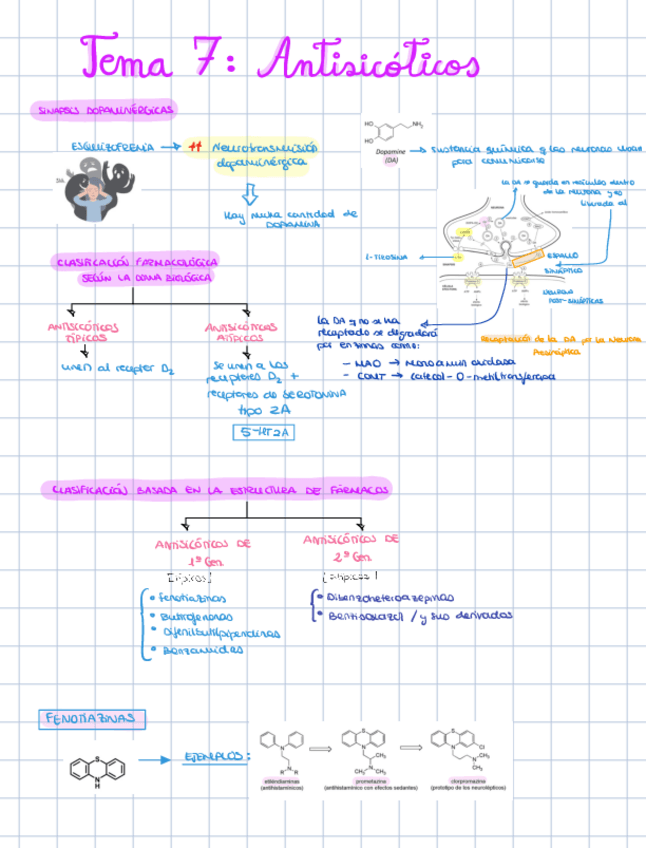 Tema 7: Antisicóticos
SINAPSIS DOPAMINÉRGICAS
ESQUIZOFRENIA → ↑↑ Neurotransmisión
dopaminérgica
Hay mucha cantidad de
DOPAMINA
HO
HO
NH₂
Dopamine
(DA)
→ sustancia química q las neuronas usan
para comunicarse
la DA se guarda en vesículas dentro
de la neurona y es
liberada al
L-TIROSINA
ESPACIO
SINÁPTICO
NEURONA
POST-SINÁPTICA
CLASIFICACIÓN FARMACOLÓGICA
SEGÚN LA DIANA BIOLÓGICA
ANTISICÓTICOS
TÍPICOS
unen al receptor D₂
ANTISICÓTICOS
ATÍPICOS
se unen a los
receptores D₂ +
receptores de SEROTONINA
tipo 2A
5-HT2A
la DA q no se ha
recaptado se degradará
por enzimas como:
- MAO → Monoamin oxidasa
- COMT → catecol-O-metiltransferasa
Recaptación de la DA por la Neurona
Presináptica
CLASIFICACIÓN BASADA EN LA ESTRUCTURA DE FÁRMACOS
ANTISICÓTICOS DE
1ª Gen.
[típicos]
• Fenotiazinas
• Butirofenonas
• Difenilbutilpiperidinas
• Benzamidas
ANTISICÓTICOS DE
2ª Gen
[atípicos]
• Dibenzoheteroazepinas
• Bencisoxazol / y sus derivados
FENOTIAZINAS
S
N
H
→ EJEMPLOS:
etilendiaminas
(antihistamínicos)
prometazina
(antihistamínico con efectos sedantes)
clorpromazina
(prototipo de los neurolépticos)